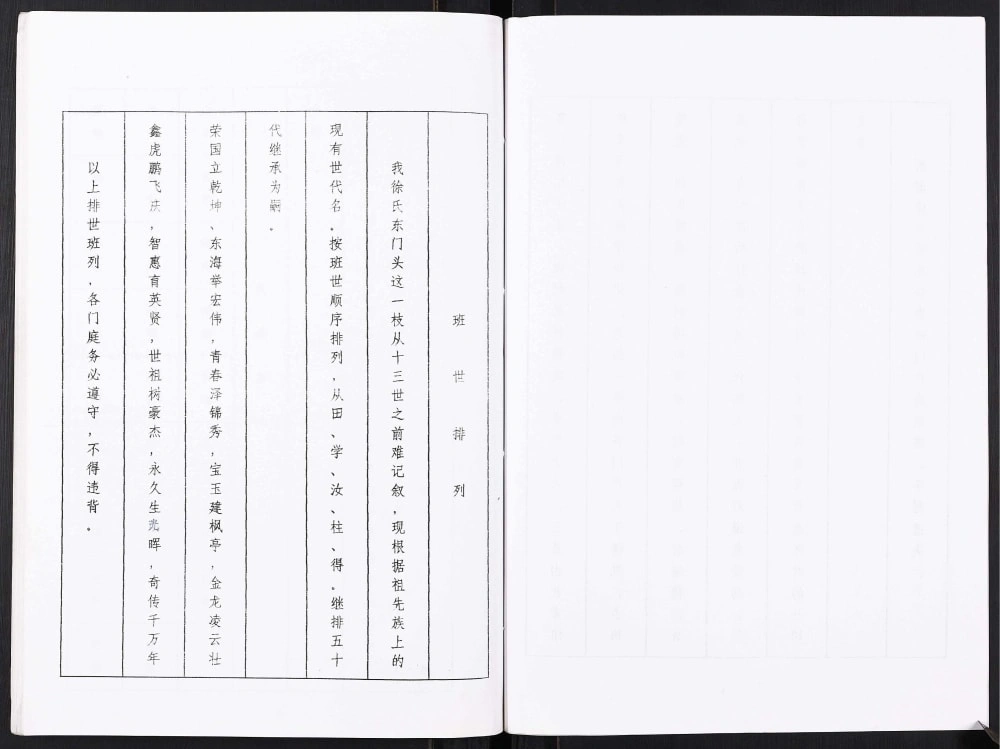 班世排列
我徐氏东门头这一枝从十三世之前难记叙，现根据祖先族上的
现有世代名。按班世顺序排列，从田、学、汝、柱、得。继排五十
代继承为嗣。
荣国立乾坤、东海举宏伟，青春泽锦秀，宝玉建枫亭，金龙凌云壮
鑫虎鹏飞庆，智惠育英贤，世祖树豪杰，永久生光晖，奇传千万年
以上排世班列，各门庭务必遵守，不得违背。